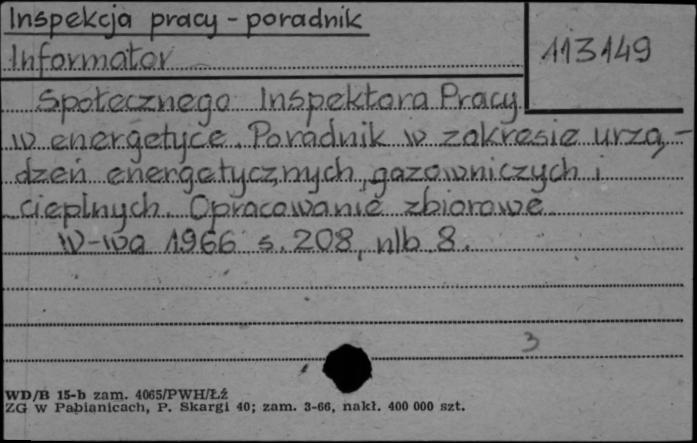 Inspekcja pracy - poradnik
Informator
113149
Społecznego Inspektora Pracy
w energetyce. Poradnik w zakresie urzą-
dzeń energetycznych, gazowniczych i
cieplnych. Opracowanie zbiorowe
W-wa 1966 s. 208, nlb 8.
3
WD/B 15-b zam. 4065/PWH/Łź
ZG w Pabianicach, P. Skargi 40; zam. 3-66, nakł. 400 000 szt.